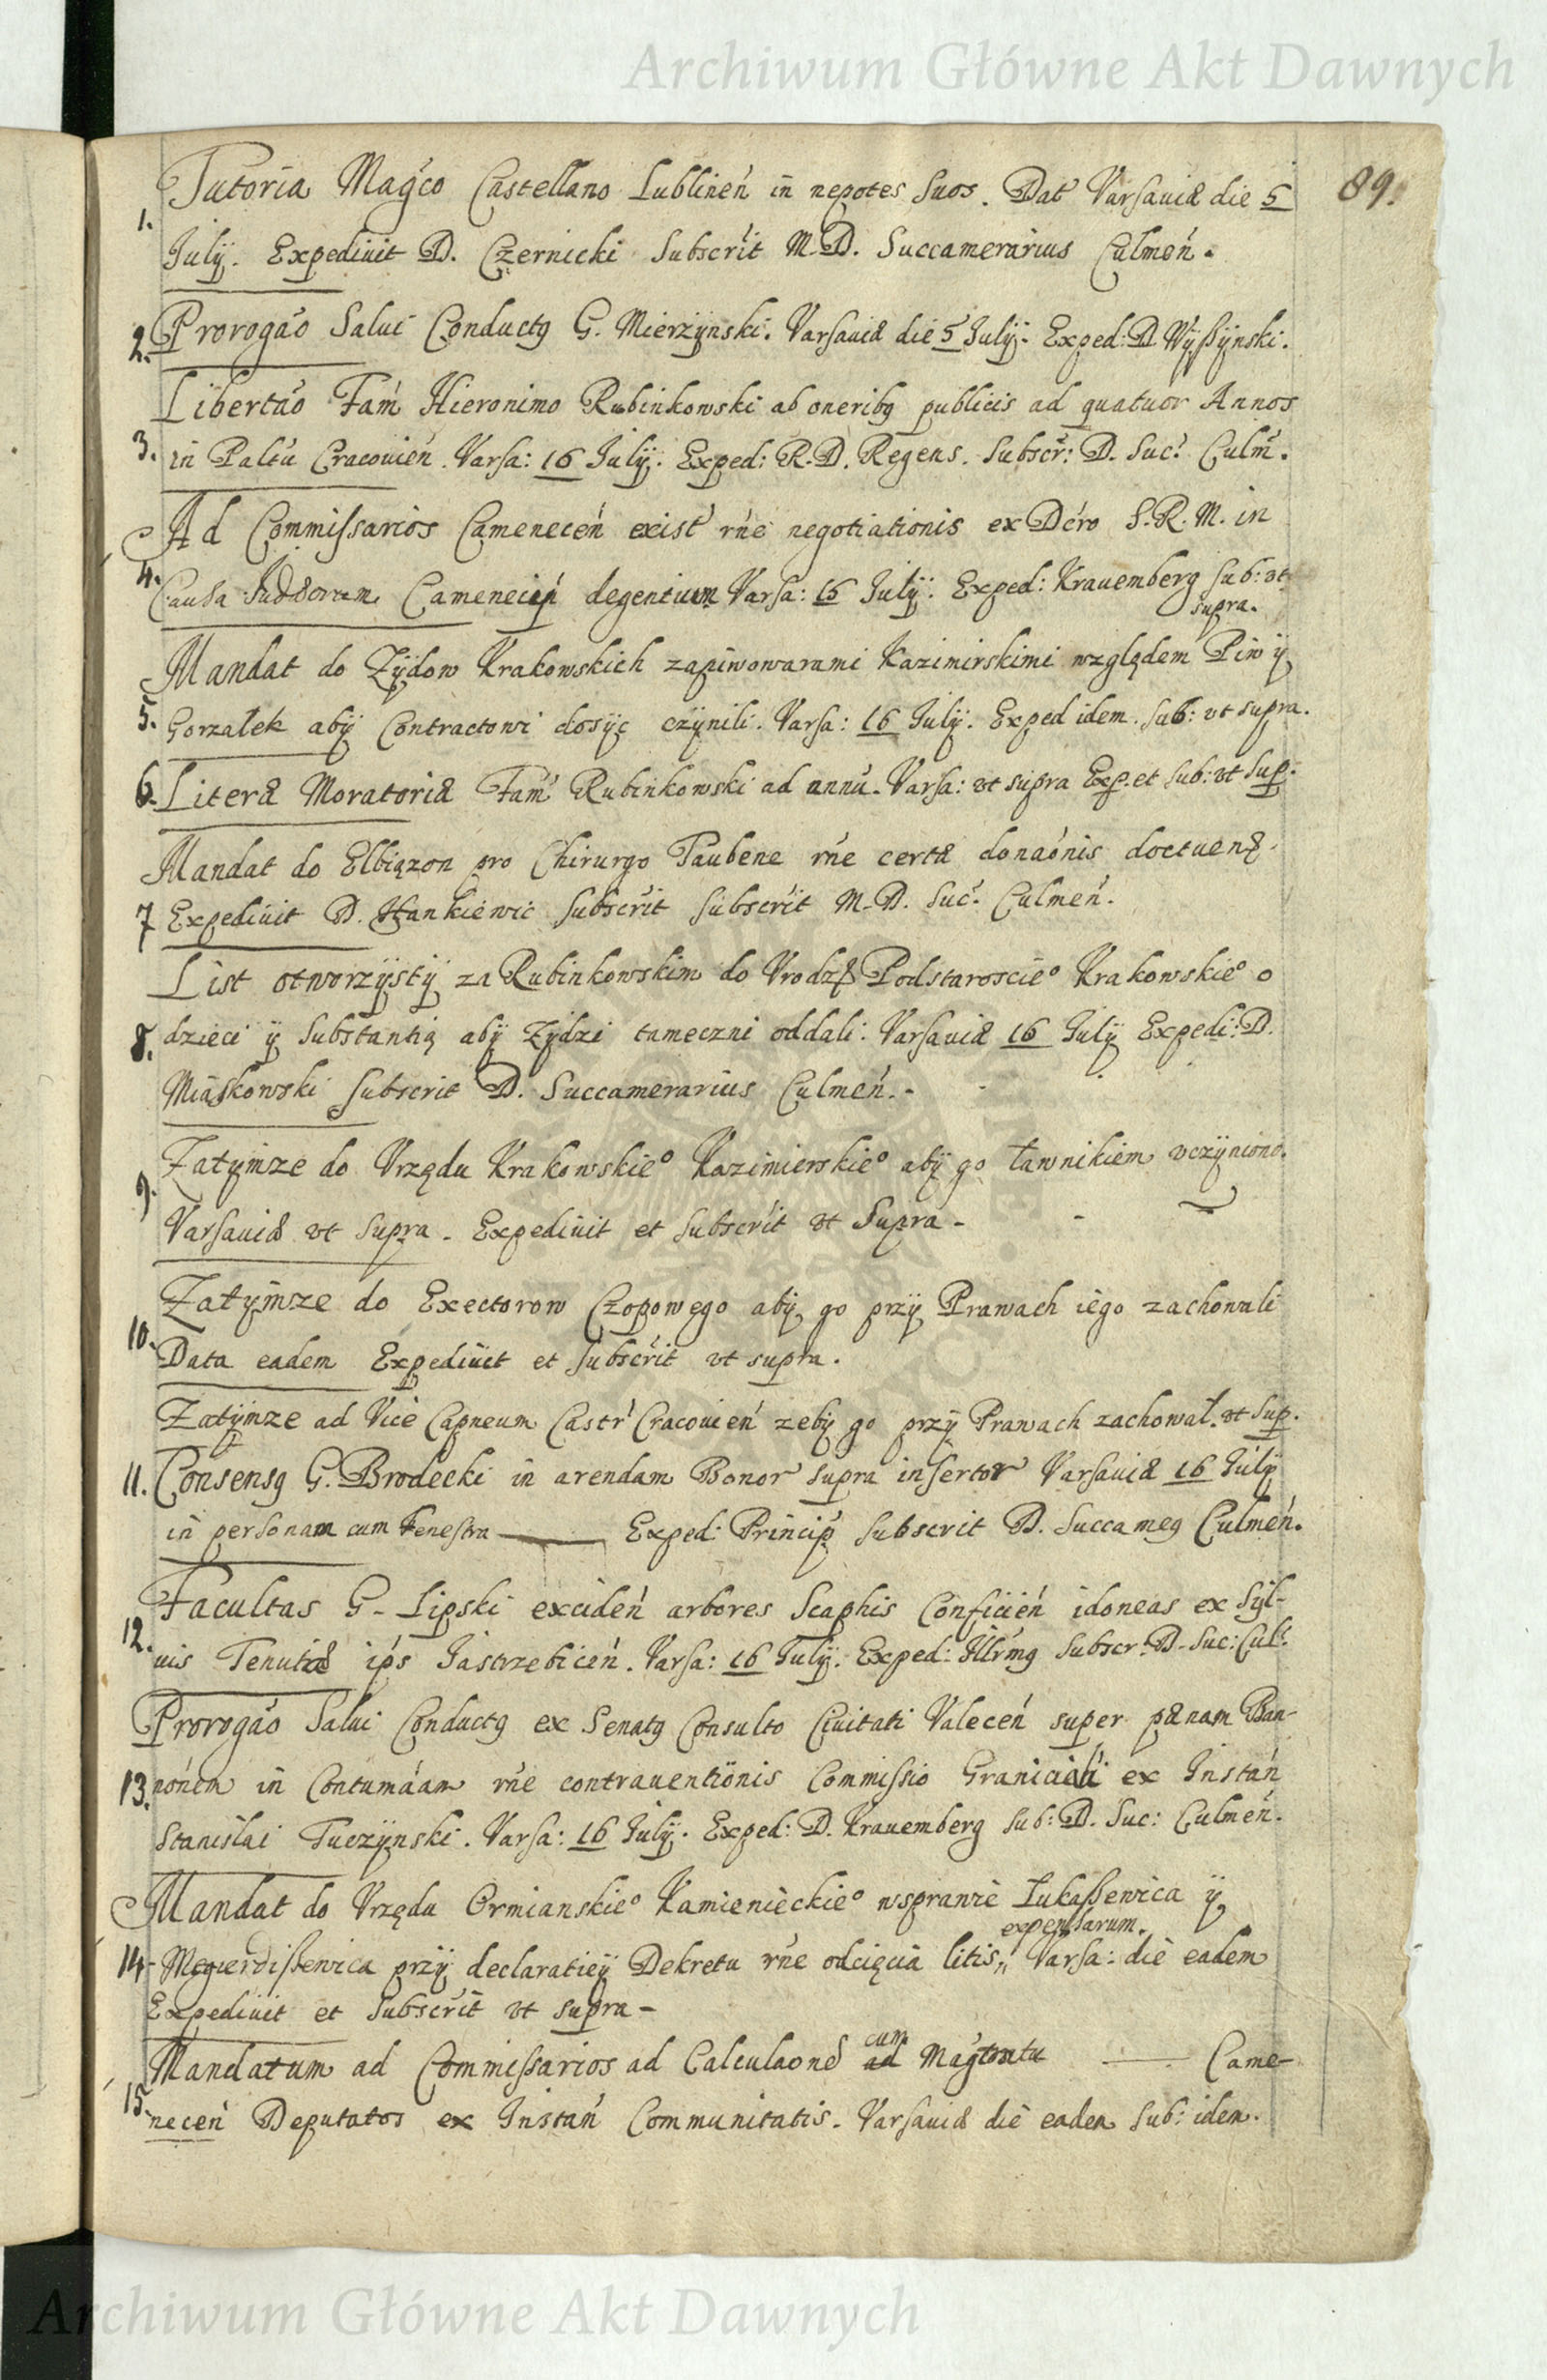 Archiwum Główne Akt Dawnych
89.
Tutoria Magco Castellano Lublineń in nepotes suos. Dat Varsaviæ die 5
1. July. Expedivit D. Czernicki Subscrit M. D. Succamerarius Culmeń.
2. Prorogáo Salvi Conductg G. Mierzÿnski. Varsaviæ die 5 Julÿ. Exped: D. Wÿßÿnski.
Libertáo Fam Hieronimo Rubinkowski ab oneribg publicis ad quatuor Annos
3. in Paltu Cracovień. Varsa: 16 Julÿ. Exped: R. D. Regens. Subscr: D. Suc: Culm.
Ad Commissarios Cameneceń exist rńe negotiationis ex Dcro S. R. M. in
4. Causa degentium Varsa: 16 Julÿ. Exped: Krauemberg sub: vt
supra.
Mandat do Zÿdow Krakowskich zapiwowarami Kazimirskimi względem Piw ÿ
5. Gorzałek abÿ Contractowi dosÿc czÿnili. Varsa: 16 Julÿ. Exped idem. sub: vt supra.
6. Literæ Moratoriæ Fam Rubinkowski ad annu. Varsa: vt supra Exp. et sub: vt sup.
Mandat do Elbiązon pro Chirurgo Taubene rńe certæ donaónis
7 Expedivit D. Hankiewic Subscrit Subscrit M. D. Suc. Culmeń.
List otworzÿstÿ za Rubinkowskim do Vrodz Podstaroscie° Krakowskie° o
8. dzieci ÿ Substantią abÿ Zÿdzi tameczni oddali: Varsaviæ 16 Julÿ Expedi: D.
Miaskowski subscrit D. Succamerarius Culmeń.
Zatÿmze do Vrzędu Krakowskie° Kazimierskie° abÿ go ławnikiem vczÿniono.
9. Varsaviæ vt supra. Expedivit et subscrit vt Supra
Zatÿmze do Exectorow Czopowego abÿ go przÿ Prawach iego zachowali
10. Data eadem Expedivit et subscrit vt supra.
Zatÿmze ad Vice Capneum Castr Cracovień zebÿ go przÿ Prawach zachował. vt sup.
11. Consensg G. Brodecki in arendam Bonor supra insertor Varsaviæ 16 Julÿ
in personam cum Fenestra Exped: Princip subscrit D. Succameg Culmeń.
Facultas G. Lipski excideń arbores Scaphis Conficień idoneas ex Sÿl-
12. uis Tenutæ ips Jastrzebiceń. Varsa: 16 Julÿ. Exped: Subscr. D. Suc: Cul:
Prorogáo Salvi Conductg ex Senatg Consulto Civitati Valeceń super pænam Ban-
13. nónem in Contumáam rńe contraventionis Commissio ex Instań
Stanislai Tuczÿnski. Varsa: 16 Julÿ. Exped: D. Krauemberg sub: D. Suc: Culmeń.
Mandat do Vrzędu Ormianskie° Kamienieckie° wsprawie Łukaßewica ÿ
expensarum.
14. Meguerdißewica przÿ declaratieÿ Dekretu rńe odcięcia litis,, Varsa: die eadem
Expedivit et subscrit vt supra
cum
Mandatum ad Commissarios ad Calculaone ad Magtratu Came-
15. neceń Deputatos ex Instań Communitatis. Varsaviæ die eadem sub: idem.
Archiwum Główne Akt Dawnych